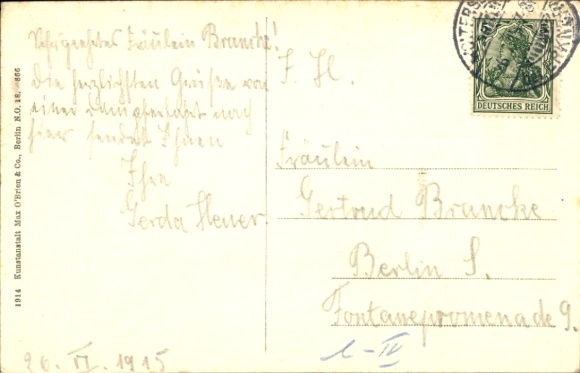 Sehr geehrtes Fräulein Brancke!
Die herzlichsten Grüße von
einer Dampferfahrt nach
hier sendet Ihnen
Ihre
Gerda Heuer.
26. VI. 1915
1914 Kunstanstalt Max O'Brien & Co., Berlin N.O. 18.
DEUTSCHES REICH
Fräulein
Gertrud Brancke
Berlin S.
Fontanepromenade 9.